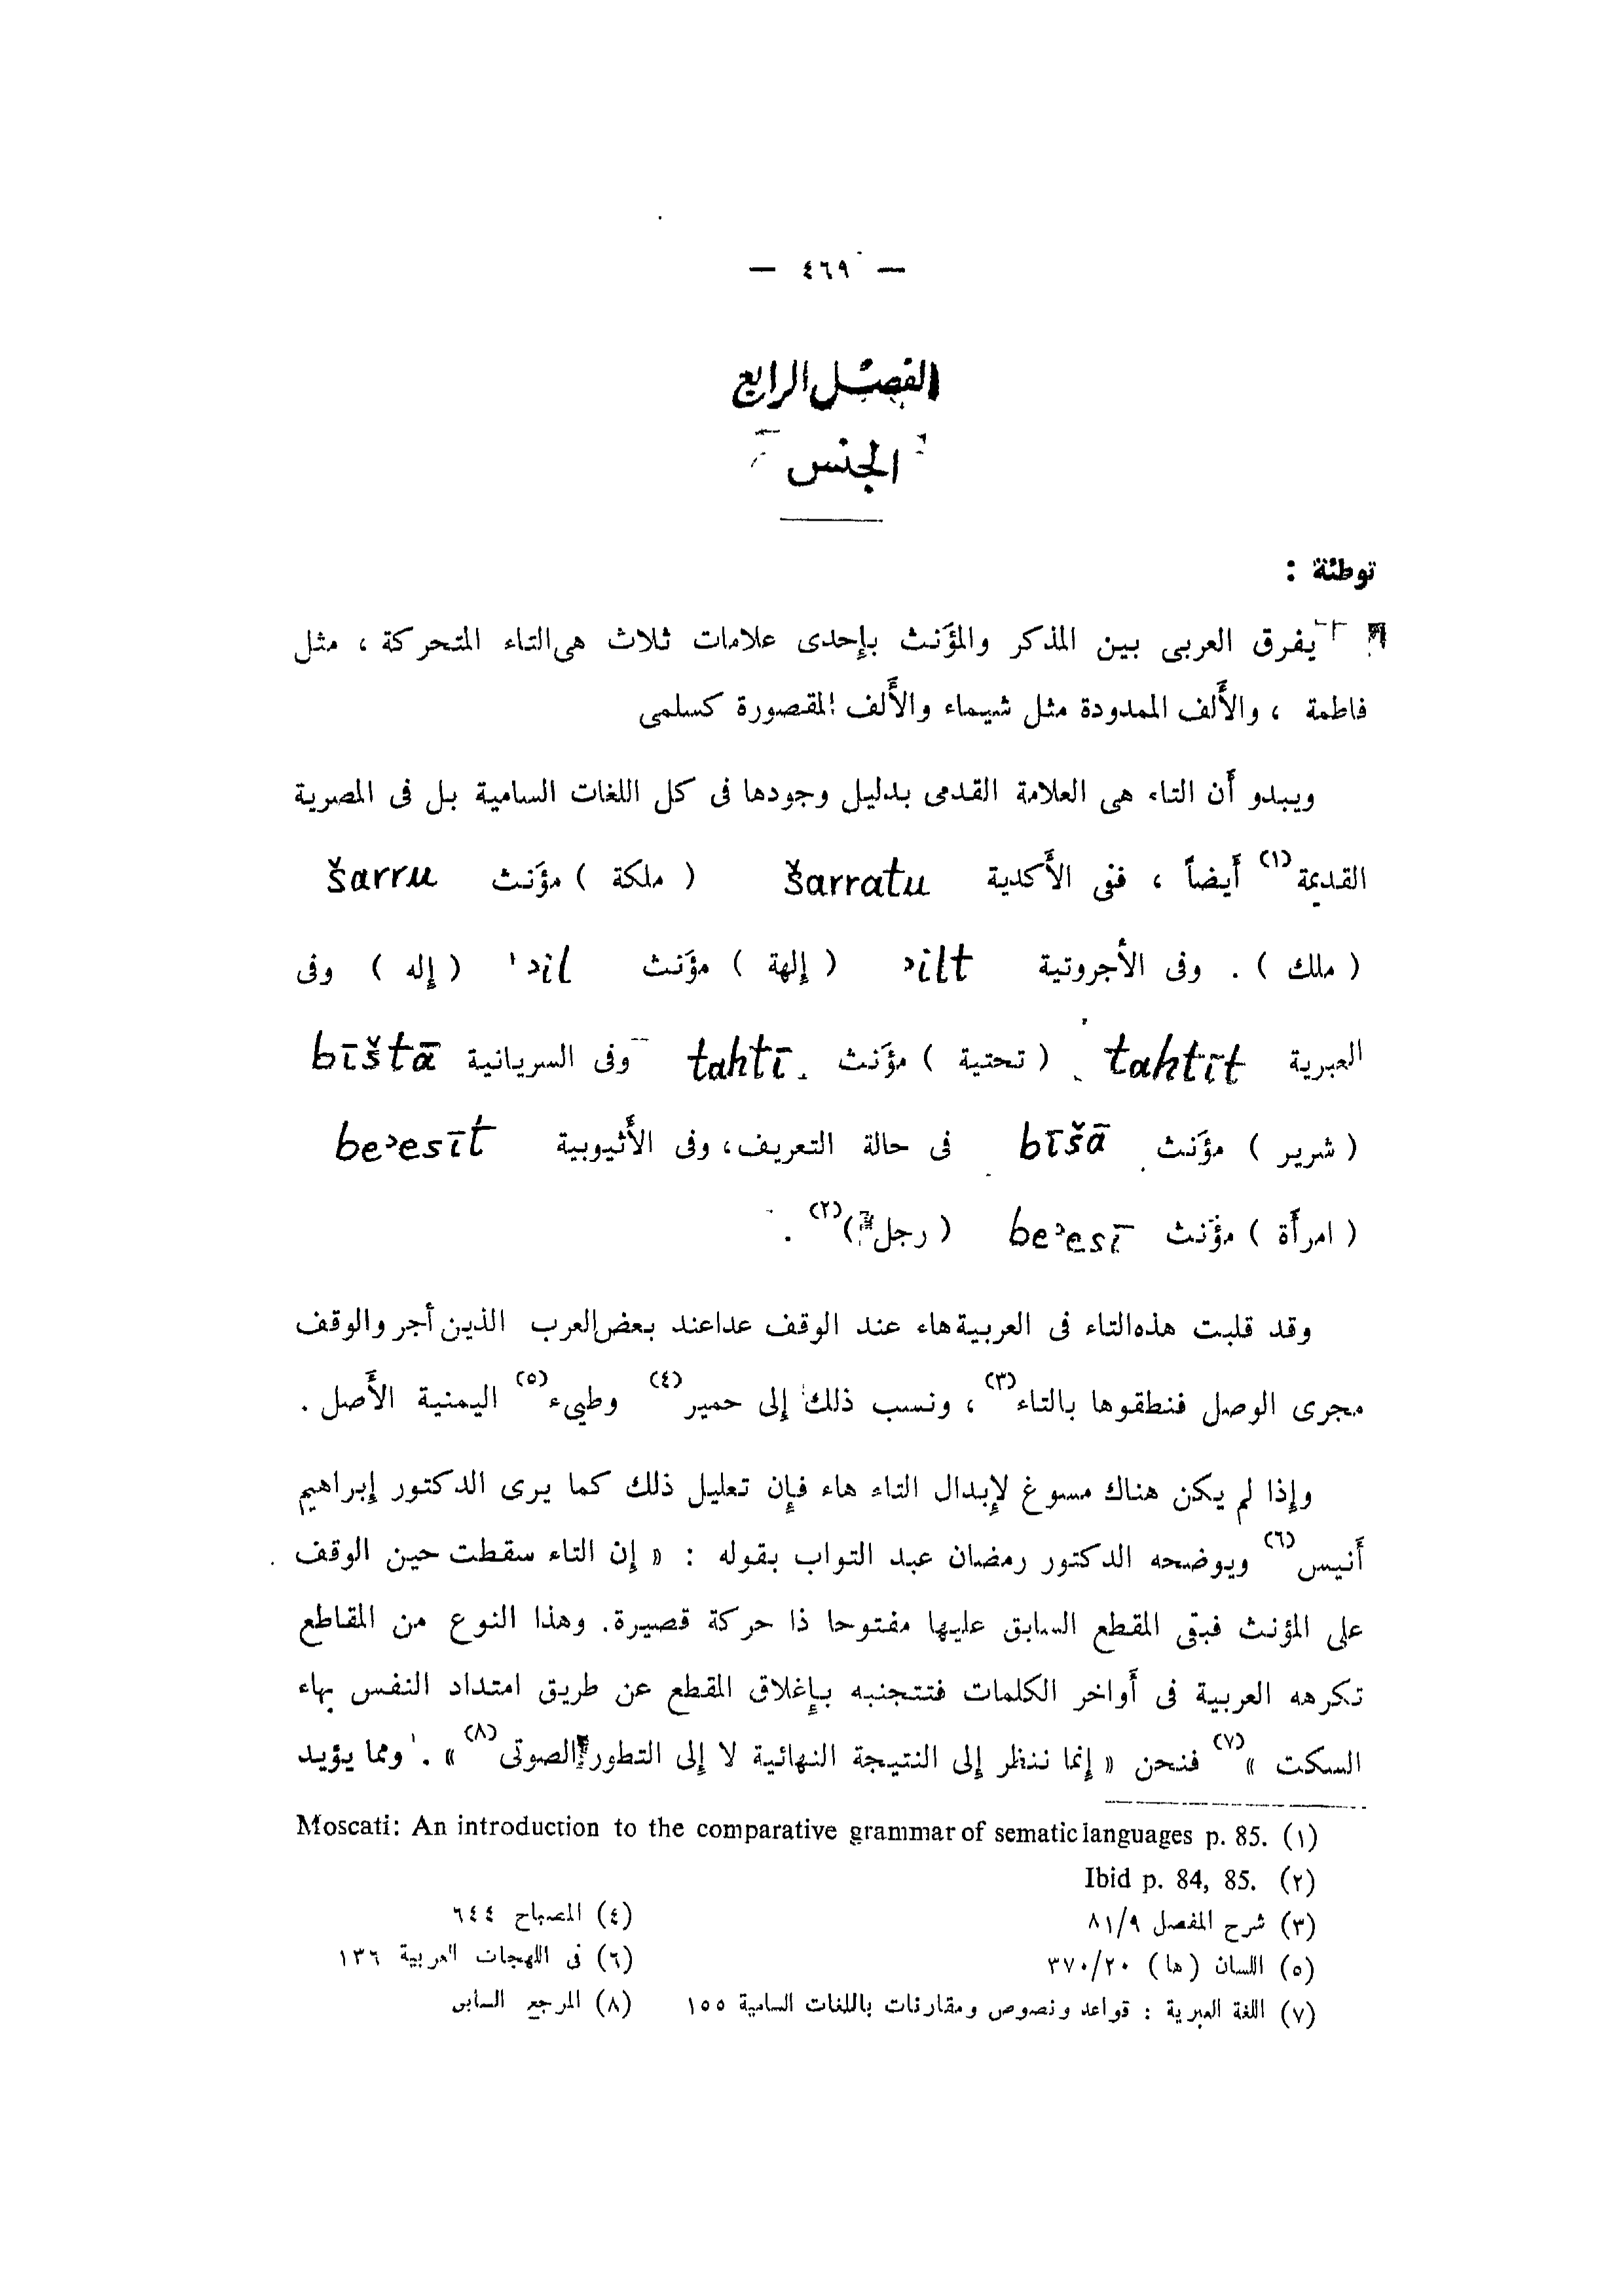 — ٤٦٩ —
الفصل الرابع
الجنس
توطئة :
يفرق العربى بين المذكر والمؤَنث بإِحدى علامات ثلاث هى التاء المتحركة ، مثل
فاطمة ، والأَلف الممدودة مثل شيماء والأَلف المقصورة كسلمى
ويبدو أَن التاء هى العلامة القدمى بدليل وجودها فى كل اللغات السامية بل فى المصرية
القديمة(١) أَيضاً ، ففى الأَكدية šarratu ( ملكة ) مؤَنث šarru
( ملك ) . وفى الأجروتية ʾilt ( إِلهة ) مؤَنث ʾil ( إِله ) وفى
العبرية tahtīt ( تحتية ) مؤَنث tahtī وفى السريانية bīštā
( شرير ) مؤَنث bīšā فى حالة التعريف ، وفى الأَثيوبية beʾesīt
( امرأَة ) مؤَنث beʾesī ( رجل )(٢) .
وقد قلبت هذه التاء فى العربية هاء عند الوقف عدا عند بعض العرب الذين أجر والوقف
مجرى الوصل فنطقوها بالتاء(٣) ، ونسب ذلك إِلى حمير(٤) وطيىء(٥) اليمنية الأَصل .
وإِذا لم يكن هناك مسوغ لإِبدال التاء هاء فإِن تعليل ذلك كما يرى الدكتور إِبراهيم
أَنيس(٦) ويوضحه الدكتور رمضان عبد التواب بقوله : « إِن التاء سقطت حين الوقف
على المؤنث فبقى المقطع السابق عليها مفتوحا ذا حركة قصيرة. وهذا النوع من المقاطع
تكرهه العربية فى أَواخر الكلمات فتتجنبه بإِغلاق المقطع عن طريق امتداد النفس بهاء
السكت »(٧) فنحن « إِنما ننظر إِلى النتيجة النهائية لا إِلى التطور الصوتى(٨) » . ومما يؤيد
Moscati: An introduction to the comparative grammar of sematic languages p. 85. (١)
Ibid p. 84, 85. (٢)
(٣) شرح المفصل ٨١/٩ (٤) المصباح ٦٤٤
(٥) اللسان (ها) ٣٧٠/٢٠ (٦) فى اللهجات العربية ١٣٦
(٧) اللغة العبرية : قواعد ونصوص ومقارنات باللغات السامية ١٥٥ (٨) المرجع السابق